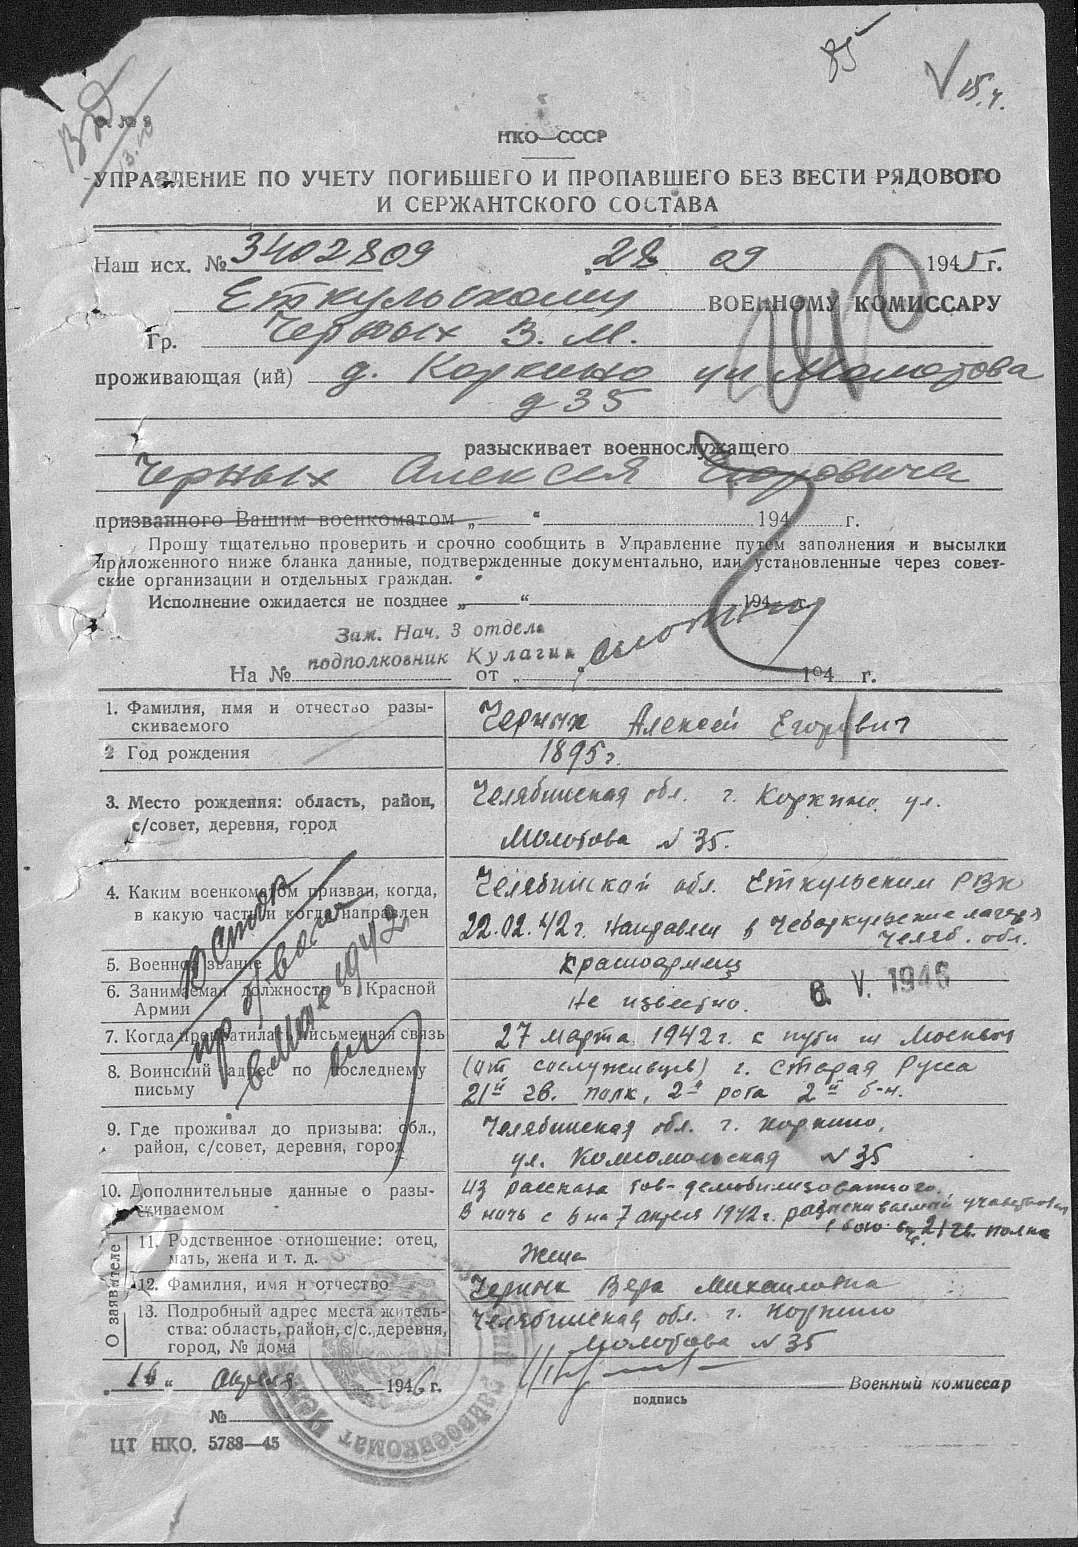 85
V 15.4.
НКО—СССР
УПРАВЛЕНИЕ ПО УЧЕТУ ПОГИБШЕГО И ПРОПАВШЕГО БЕЗ ВЕСТИ РЯДОВОГО
И СЕРЖАНТСКОГО СОСТАВА
Наш исх. № 3402809 „28 09 1945 г.
Еткульскому ВОЕННОМУ КОМИССАРУ
Гр. Черных В. М.
проживающая (ий) д. Коркино ул Молотова
д 35
разыскивает военнослужащего
Черных Алексея Егоровича
призванного Вашим военкоматом „ “ 194 г.
Прошу тщательно проверить и срочно сообщить в Управление путем заполнения и высылки
приложенного ниже бланка данные, подтвержденные документально, или установленные через совет-
ские организации и отдельных граждан.
Исполнение ожидается не позднее „ “ 194 г.
Зам. Нач. 3 отдела
подполковник Кулагин
На № от „ “ 194 г.
1. Фамилия, имя и отчество разы-
скиваемого Черных Алексей Егорович
2 Год рождения 1895 г.
3. Место рождения: область, район, Челябинская обл. г. Коркино ул.
с/совет, деревня, город Молотова № 35.
4. Каким военкоматом призван, когда, Челябинской обл. Еткульским РВК
в какую часть и когда направлен 22.02.42 г. Направлен в Чебаркульские лагеря
Челяб. обл.
5. Военное звание красноармеец
6. Занимаемая должность в Красной
Армии Не известно. 6. V. 1946
7. Когда прекратилась письменная связь 27 марта 1942 г. к пути
8. Воинский адрес по последнему (от сослуживцев) г. Старая Русса
письму 21й гв. полк, 2я рота 2й б-н.
9. Где проживал до призыва: обл., Челябинская обл. г. Коркино,
район, с/совет, деревня, город ул. Комсомольская № 35
10. Дополнительные данные о разы- из рассказа тов. демобилизованного.
скиваемом В ночь с 6 на 7 апреля 1942 г. разыскиваемый участвовал
в бою 21 гв. полка
О заявителе
11. Родственное отношение: отец,
мать, жена и т. д. Жена
12. Фамилия, имя и отчество Черных Вера Михайловна
13. Подробный адрес места житель- Челябинская обл. г. Коркино
ства: область, район, с/с., деревня,
город, № дома Молотова № 35
„16“ апреля 1946 г. Военный комиссар
подпись
№
ЦТ НКО. 5788—45
пр б/вести
в мае 1942
райвоенкомат